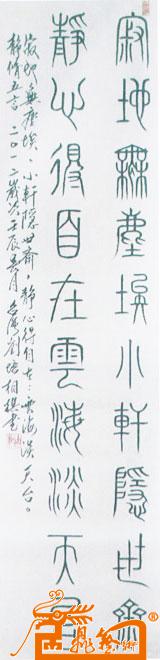 寂地無塵埃小軒隱世齋
靜心得自在雲海淡天台
寂地無塵埃，小軒隱世齋，靜心得自在：雲海淡天台。
靜修五言二〇一二歲次壬辰